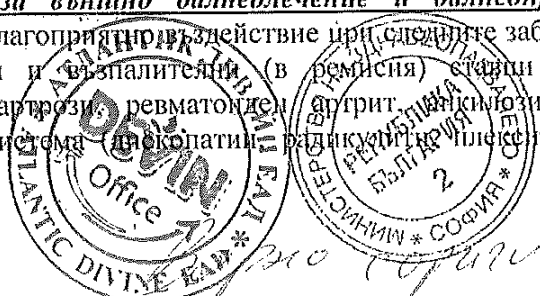 за външно балнеолечение и
благоприятно въздействие при следните заб
и възпалителни (в ремисия) ставни
артрози, ревматоиден артрит, анкилози
система (дископатии, радикулити, плекси
АТЛАНТИК ДИВАЙН ЕАД *
ATLANTIC DIVINE EAD *
DEVIN
Office
МИНИСТЕРСТВО НА ЗДРАВЕОПАЗВАНЕТО * СОФИЯ *
РЕПУБЛИКА
БЪЛГАРИЯ
2